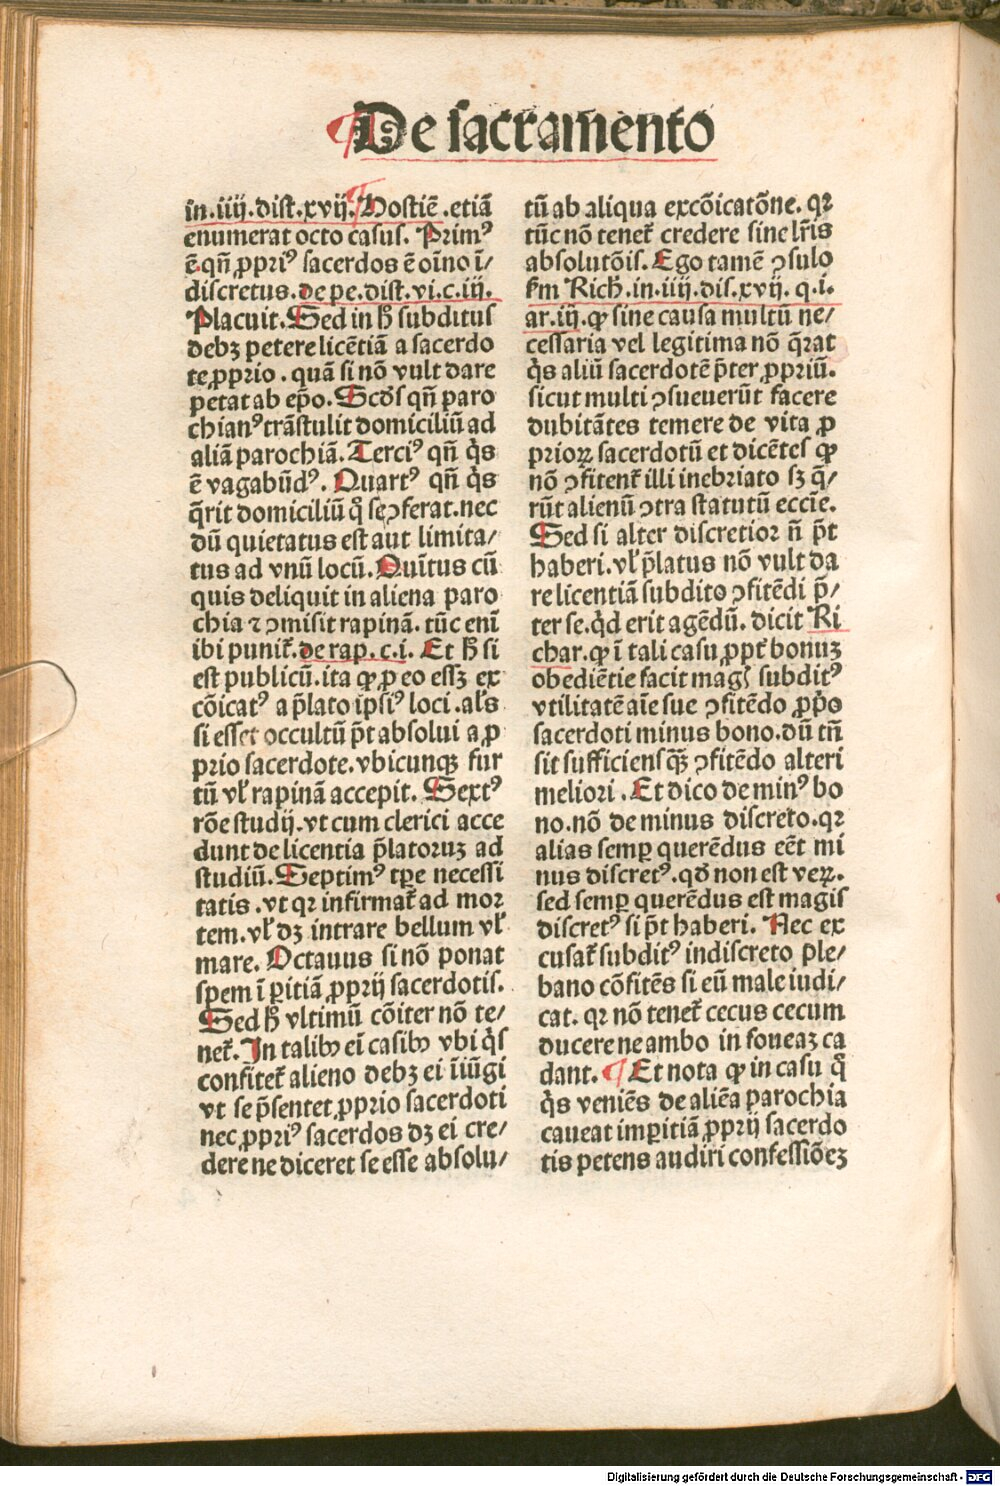 De sacramento
in.iiij.dist.xvij. Hostiē.etiā
enumerat octo casus. Primꝰ
ē.qn̄ ꝓpriꝰ sacerdos ē oīno ī/
discretus.de pe.dist.vi.c.iij.
Placuit.Sed in hͦ subditus
debꝫ petere licētiā a sacerdo
te ꝓprio.quā si nō vult dare
petat ab ep̄o.Scd̕s qn̄ paro
chianꝰ trāstulit domiciliū ad
aliā parochiā.Terciꝰ qn̄ q̇s
ē vagabūdꝰ. Quartꝰ qn̄ q̇s
q̄rit domiciliū q̊ se ꝯferat.nec
dū quietatus est aut limita/
tus ad vnū locū. Quītus cū
quis deliquit in aliena paro
chia ⁊ ꝯmisit rapinā.tūc enī
ibi punit̄.de rap.c.i. Et hͦ si
est publicū.ita ꝙ ꝓ eo essꝫ ex
cōicatꝰ a p̄lato ipsiꝰ loci.al̕s
si esset occultū p̄t absolui a ꝓ
prio sacerdote.vbicunqꝫ fur
tū vl̕ rapinā accepit. Sextꝰ
rōe studij.vt cum clerici acce
dunt de licentia p̄latoruꝫ ad
studiū.Septimꝰ tꝑe necessi
tatis.vt qꝛ infirmat̄ ad mor
tem.vl̕ dꝫ intrare bellum vl̕
mare. Octauus si nō ponat
spem ī ꝑitiā ꝓprij sacerdotis.
Sed hͦ vltimū cōiter nō te/
net̄. In talibꝰ ei̅ casibꝰ vbi q̇s
confitet̄ alieno debꝫ ei īiūgi
vt se p̄sentet ꝓprio sacerdoti
nec ꝓpriꝰ sacerdos dꝫ ei cre/
dere ne diceret se esse absolu/
tū ab aliqua excōicatōne.qꝛ
tūc nō tenet̄ credere sine lr̄is
absolutōis. Ego tamē ꝯsulo
fm Rich.in.iiij.dis.xvij. q.i.
ar.iij.ꝙ sine causa multū ne/
cessaria vel legitima nō q̄rat
q̇s aliū sacerdotē p̄ter ꝓpriū.
sicut multi ꝯsueuerūt facere
dubitātes temere de vita ꝓ
prioꝝ sacerdotū et dicētes ꝙ
nō ꝯfitent̄ illi inebriato sꝫ q̄/
rūt alienū ꝯtra statutū eccīe.
Sed si alter discretior n̄ p̄t
haberi.vl̕ p̄latus nō vult da
re licentiā subdito ꝯfitēdi p̄/
ter se.q̇d erit agēdū.dicit Ri
char.ꝙ ī tali casu ꝓpt̕ bonuꝫ
obediētie facit magꝭ subditꝰ
vtilitatē aīe sue ꝯfitēdo ꝓp̊o
sacerdoti minus bono.dū tn̄
sit sufficiens qꝫ̄ ꝯfitēdo alteri
meliori. Et dico de minꝰ bo
no.nō de minus discreto.qꝛ
alias semꝑ querēdus eēt mi
nus discretꝰ.qd̕ non est veꝝ.
sed semꝑ querēdus est magis
discretꝰ si p̄t haberi. Nec ex
cusat̄ subditꝰ indiscreto ple/
bano cōfitēs si eū male iudi/
cat. qꝛ nō tenet̄ cecus cecum
ducere ne ambo in foueaꝫ ca
dant. ¶ Et nota ꝙ in casu q̊
q̇s veniēs de aliēa parochia
caueat imꝑitiā ꝓprij sacerdo
tis petens audiri confessiōeꝫ
Digitalisierung gefördert durch die Deutsche Forschungsgemeinschaft - DFG